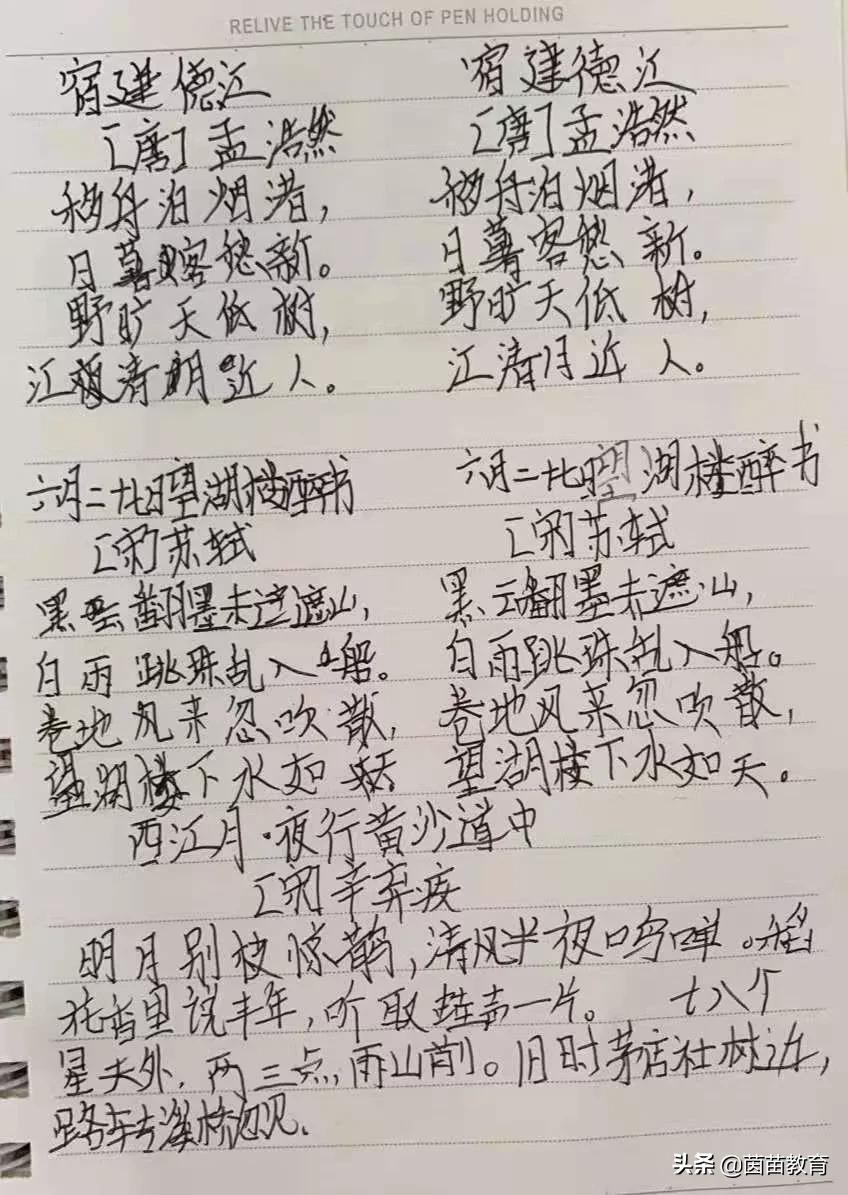 RELIVE THE TOUCH OF PEN HOLDING
宿建德江 宿建德江
[唐]孟浩然 [唐]孟浩然
移舟泊烟渚， 移舟泊烟渚，
日暮客愁新。 日暮客愁新。
野旷天低树， 野旷天低树，
江清月近人。 江清月近人。
六月二十七日望湖楼醉书 六月二十七日望湖楼醉书
[宋]苏轼 [宋]苏轼
黑云翻墨未遮山， 黑云翻墨未遮山，
白雨跳珠乱入船。 白雨跳珠乱入船。
卷地风来忽吹散， 卷地风来忽吹散，
望湖楼下水如天 望湖楼下水如天。
西江月·夜行黄沙道中
[宋]辛弃疾
明月别枝惊鹊，清风半夜鸣蝉。稻
花香里说丰年，听取蛙声一片。 七八个
星天外，两三点雨山前。旧时茅店社林边，
路转溪桥忽见。
头条 @茵苗教育